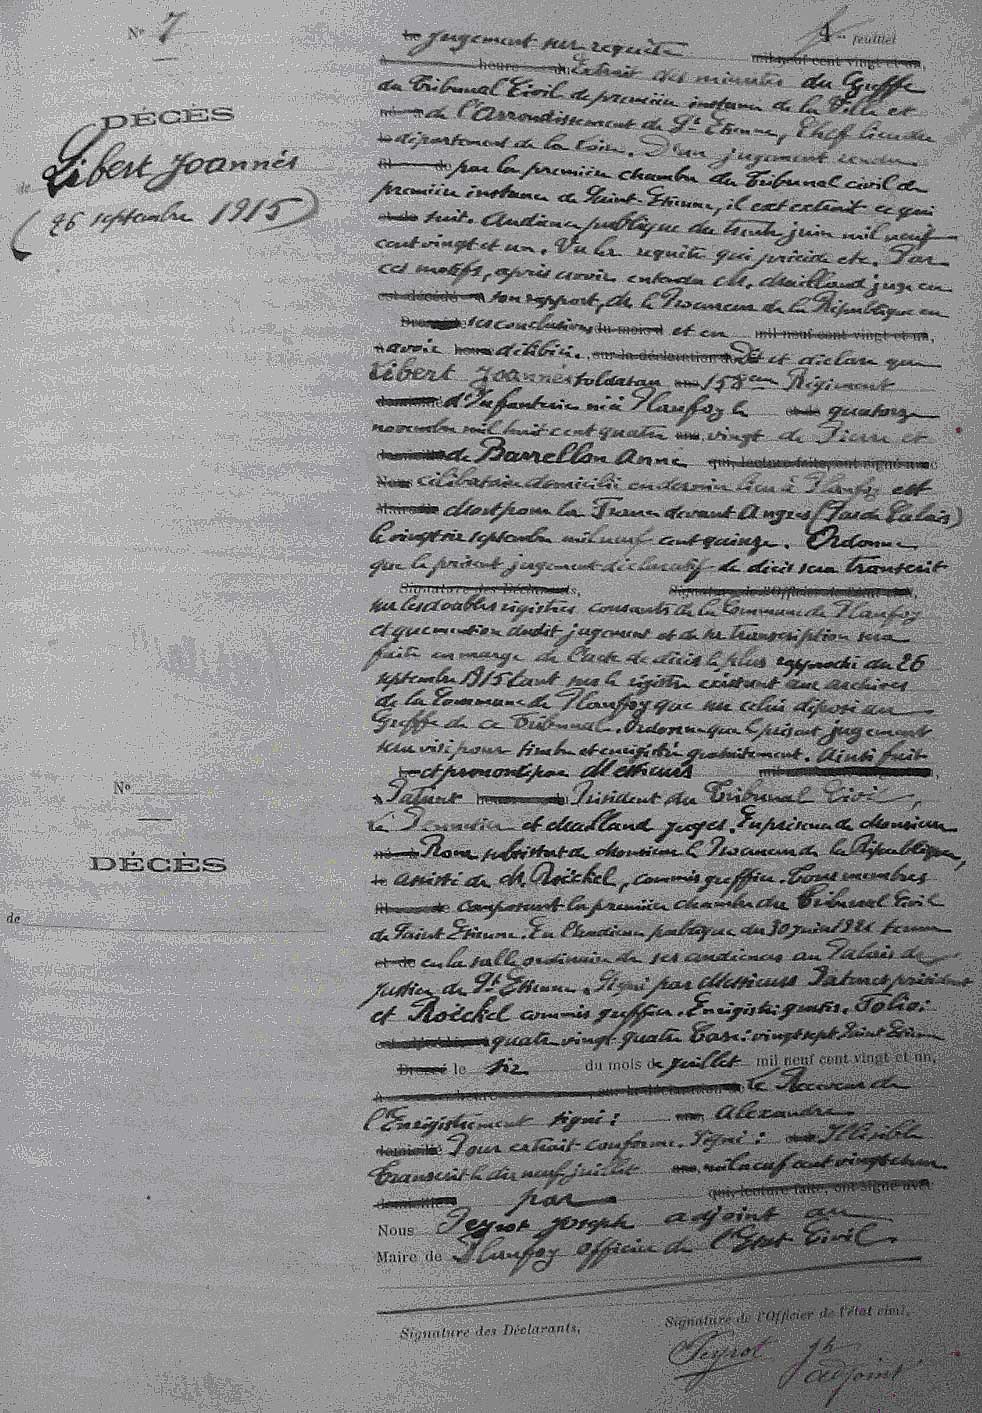 N° 7
DÉCÈS
de Libert Joannés
(26 septembre 1915)
feuillet
Le jugement sur requête mil neuf cent vingt et un,
A heure du Extrait des minutes du Greffe
du Tribunal Civil de première instance de la Ville et
de l'Arrondissement de St Etienne, Chef lieu du
département de la Loire. D'un jugement rendu
par la première chambre du Tribunal civil de
première instance de Saint-Etienne, il est extrait ce qui
suit. Audience publique du trente juin mil neuf
cent vingt et un. Vu la requête qui précède etc. Par
ces motifs, après avoir entendu M. Mailland juge en
est décédé son rapport, M. le Procureur de la République en
Dressé le ses conclusions du mois d et en mil neuf cent vingt et un,
avoir heure délibéré, sur la déclaration de Dit et déclare que
Libert Joannés soldat au ans 158em Régiment
domicilié d'Infanterie né à Planfoy le et de quatorze
novembre mil huit cent quatre ans vingt de Pierre et
domicilié de Barrellon Anne qui, lecture faite, ont signé avec
Nous célibataire domicilié en dernier lieu à Planfoy est
Maire de Mort pour la France devant Angres (Pas de Calais)
le vingt six septembre mil neuf cent quinze. Ordonne
que le présent jugement déclaratif de décès sera transcrit
Signature des Déclarants, Signature de l'Officier de l'état civil,
sur les doubles registres courants de la Commune de Planfoy
et que mention dudit jugement et de sa transcription sera
faite en marge de l'acte de décès le plus rapproché du 26
septembre 1915 tant sur le registre existant aux archives
de la Commune de Planfoy que sur celui déposé au
Greffe de ce Tribunal. Ordonne que le présent jugement
sera visé pour timbre et enregistré gratuitement. Ainsi fait
Le et prononcé par Messieurs mil neuf cent vingt et un,
A heure Président du Tribunal Civil,
et Mailland juges. En présence de Monsieur
substitut de Monsieur le Procureur de la République,
le assisté de M. Roëckel, commis greffier. Tous membres
composant la première chambre du Tribunal Civil
de Saint Etienne. En l'audience publique du 30 juin 1921 tenue
et de en la salle ordinaire de ses audiences au Palais de
Justice de St Etienne. Signé par Messieurs président
et Roëckel commis greffier. Enregistré gratis. Folio:
quatre vingt quatre Case: vingt sept Saint Etienne
Dressé le six du mois de juillet mil neuf cent vingt et un,
A heure sur la déclaration de le Receveur de
l'Enregistrement signé: ans Alexandre
domicilié Pour extrait conforme. Signé: et de Illisible
Transcrit le dix neuf juillet ans mil neuf cent vingt et un
domicilié par qui, lecture faite, ont signé avec
Nous Peyrot Joseph adjoint au
Maire de Planfoy officier de l'Etat Civil.
Signature des Déclarants, Signature de l'Officier de l'état civil,
Peyrot Jh
adjoint
N°
DÉCÈS
de